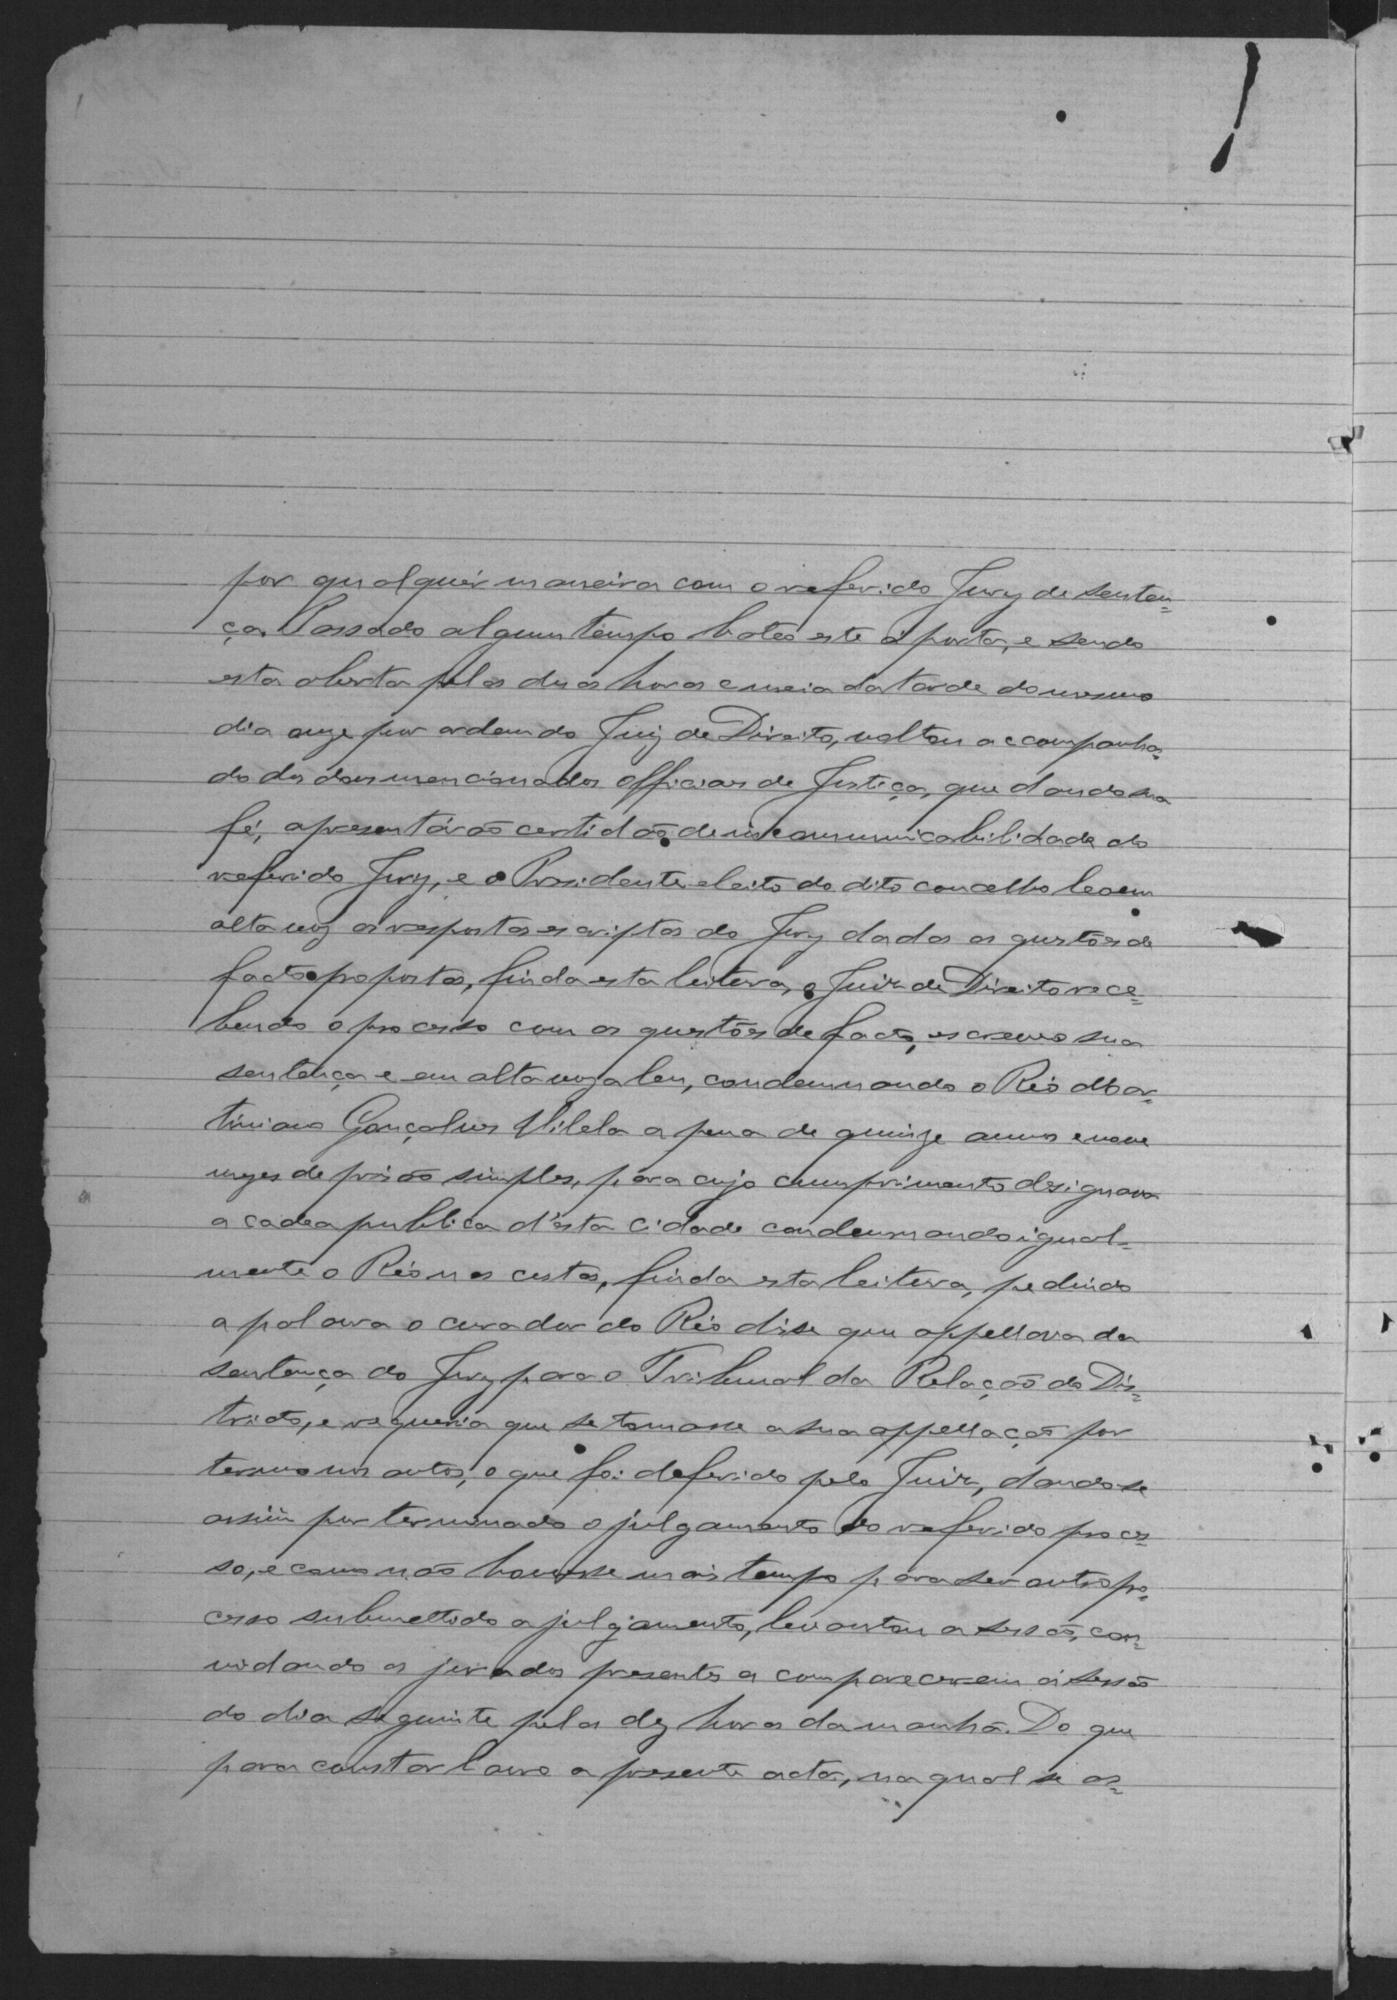 por qualquér maneira com o referido Jury de senten=
ça. Passado algum tempo bateo este á porta, e sendo
esta aberta pelas duas horas e meia da tarde do mesmo
dia onze por ordem do Juiz de Direito, voltou accompanha=
do dos dous mencionados officiaes de Justiça, que dando sua
fé, apresentárão certidão de incommunicabilidade do
referido Jury, e o Presidente eleito do dito concelho leo em
alta voz as respostas escriptas do Jury dadas as questões de
facto propostas, finda esta leitura, o Juiz de Direito rece=
bendo o processo com as questões de facto, escreveo sua
sentença e em alta voz a leu, condemnando o Réo Mar=
tiniano Gonçalves Vilela a pena de quinze annos e nove
mezes de prisão simples, para cujo cumprimento designava
a cadea publica d'esta Cidade condemnando igual=
mente o Réo nas custas, finda esta leitura, pedindo
a palavra o curador do Réo disse que appellava da
sentença do Jury para o Tribunal da Relação do Dis=
tricto, e requeria que se tomasse a sua appellação por
termo nos autos, o que foi deferido pelo Juiz, dando-se
assim por terminado o julgamento do referido proces=
so, e como não houvesse mais tempo para ser outro pro=
cesso submettido a julgamento, levantou a sessão, con=
vidando os jurados presentes a comparecerem á sessão
do dia seguinte pelas dez horas da manhã. Do que
para constar lavro a presente acta, na qual se as=